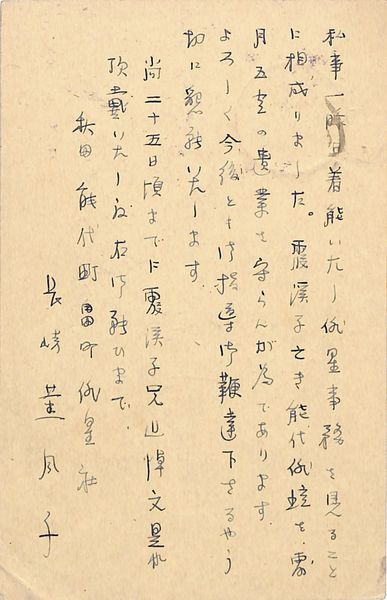 私事一時着能いたし俳星事務を見ること
に相成りました。霞渓子亡き能代俳壇を
月五空の遺業を守らんが為であります
よろしく今後とも御指導御鞭達下さるやう
切に懇願いたします、
尚二十五日頃までに霞渓子兄追悼文是非
頂戴いたし度右御願ひまで、
秋田 能代町畠町俳星社
長崎 風子